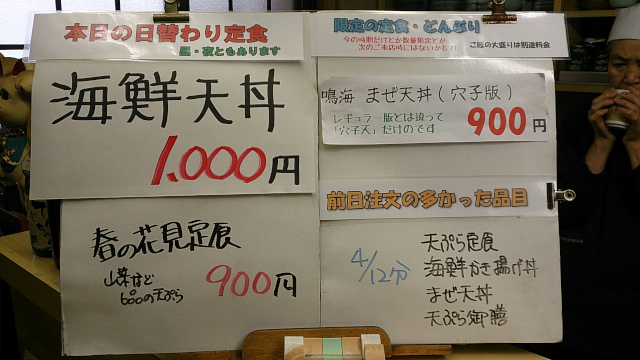 本日の日替わり定食
昼・夜ともあります
海鮮天丼
1,000円
春の花見定食
山菜など
900円
限定の定食・どんぶり
今の時期だけとか数量限定とか
次のご来店時にはないかも?!
ご飯の大盛りは別途料金
鳴海 まぜ天丼(穴子版)
レギュラー版とは違って
「穴子天」だけのです
900円
前日注文の多かった品目
4/12分
天ぷら定食
海鮮かき揚げ丼
まぜ天丼
天ぷら御膳